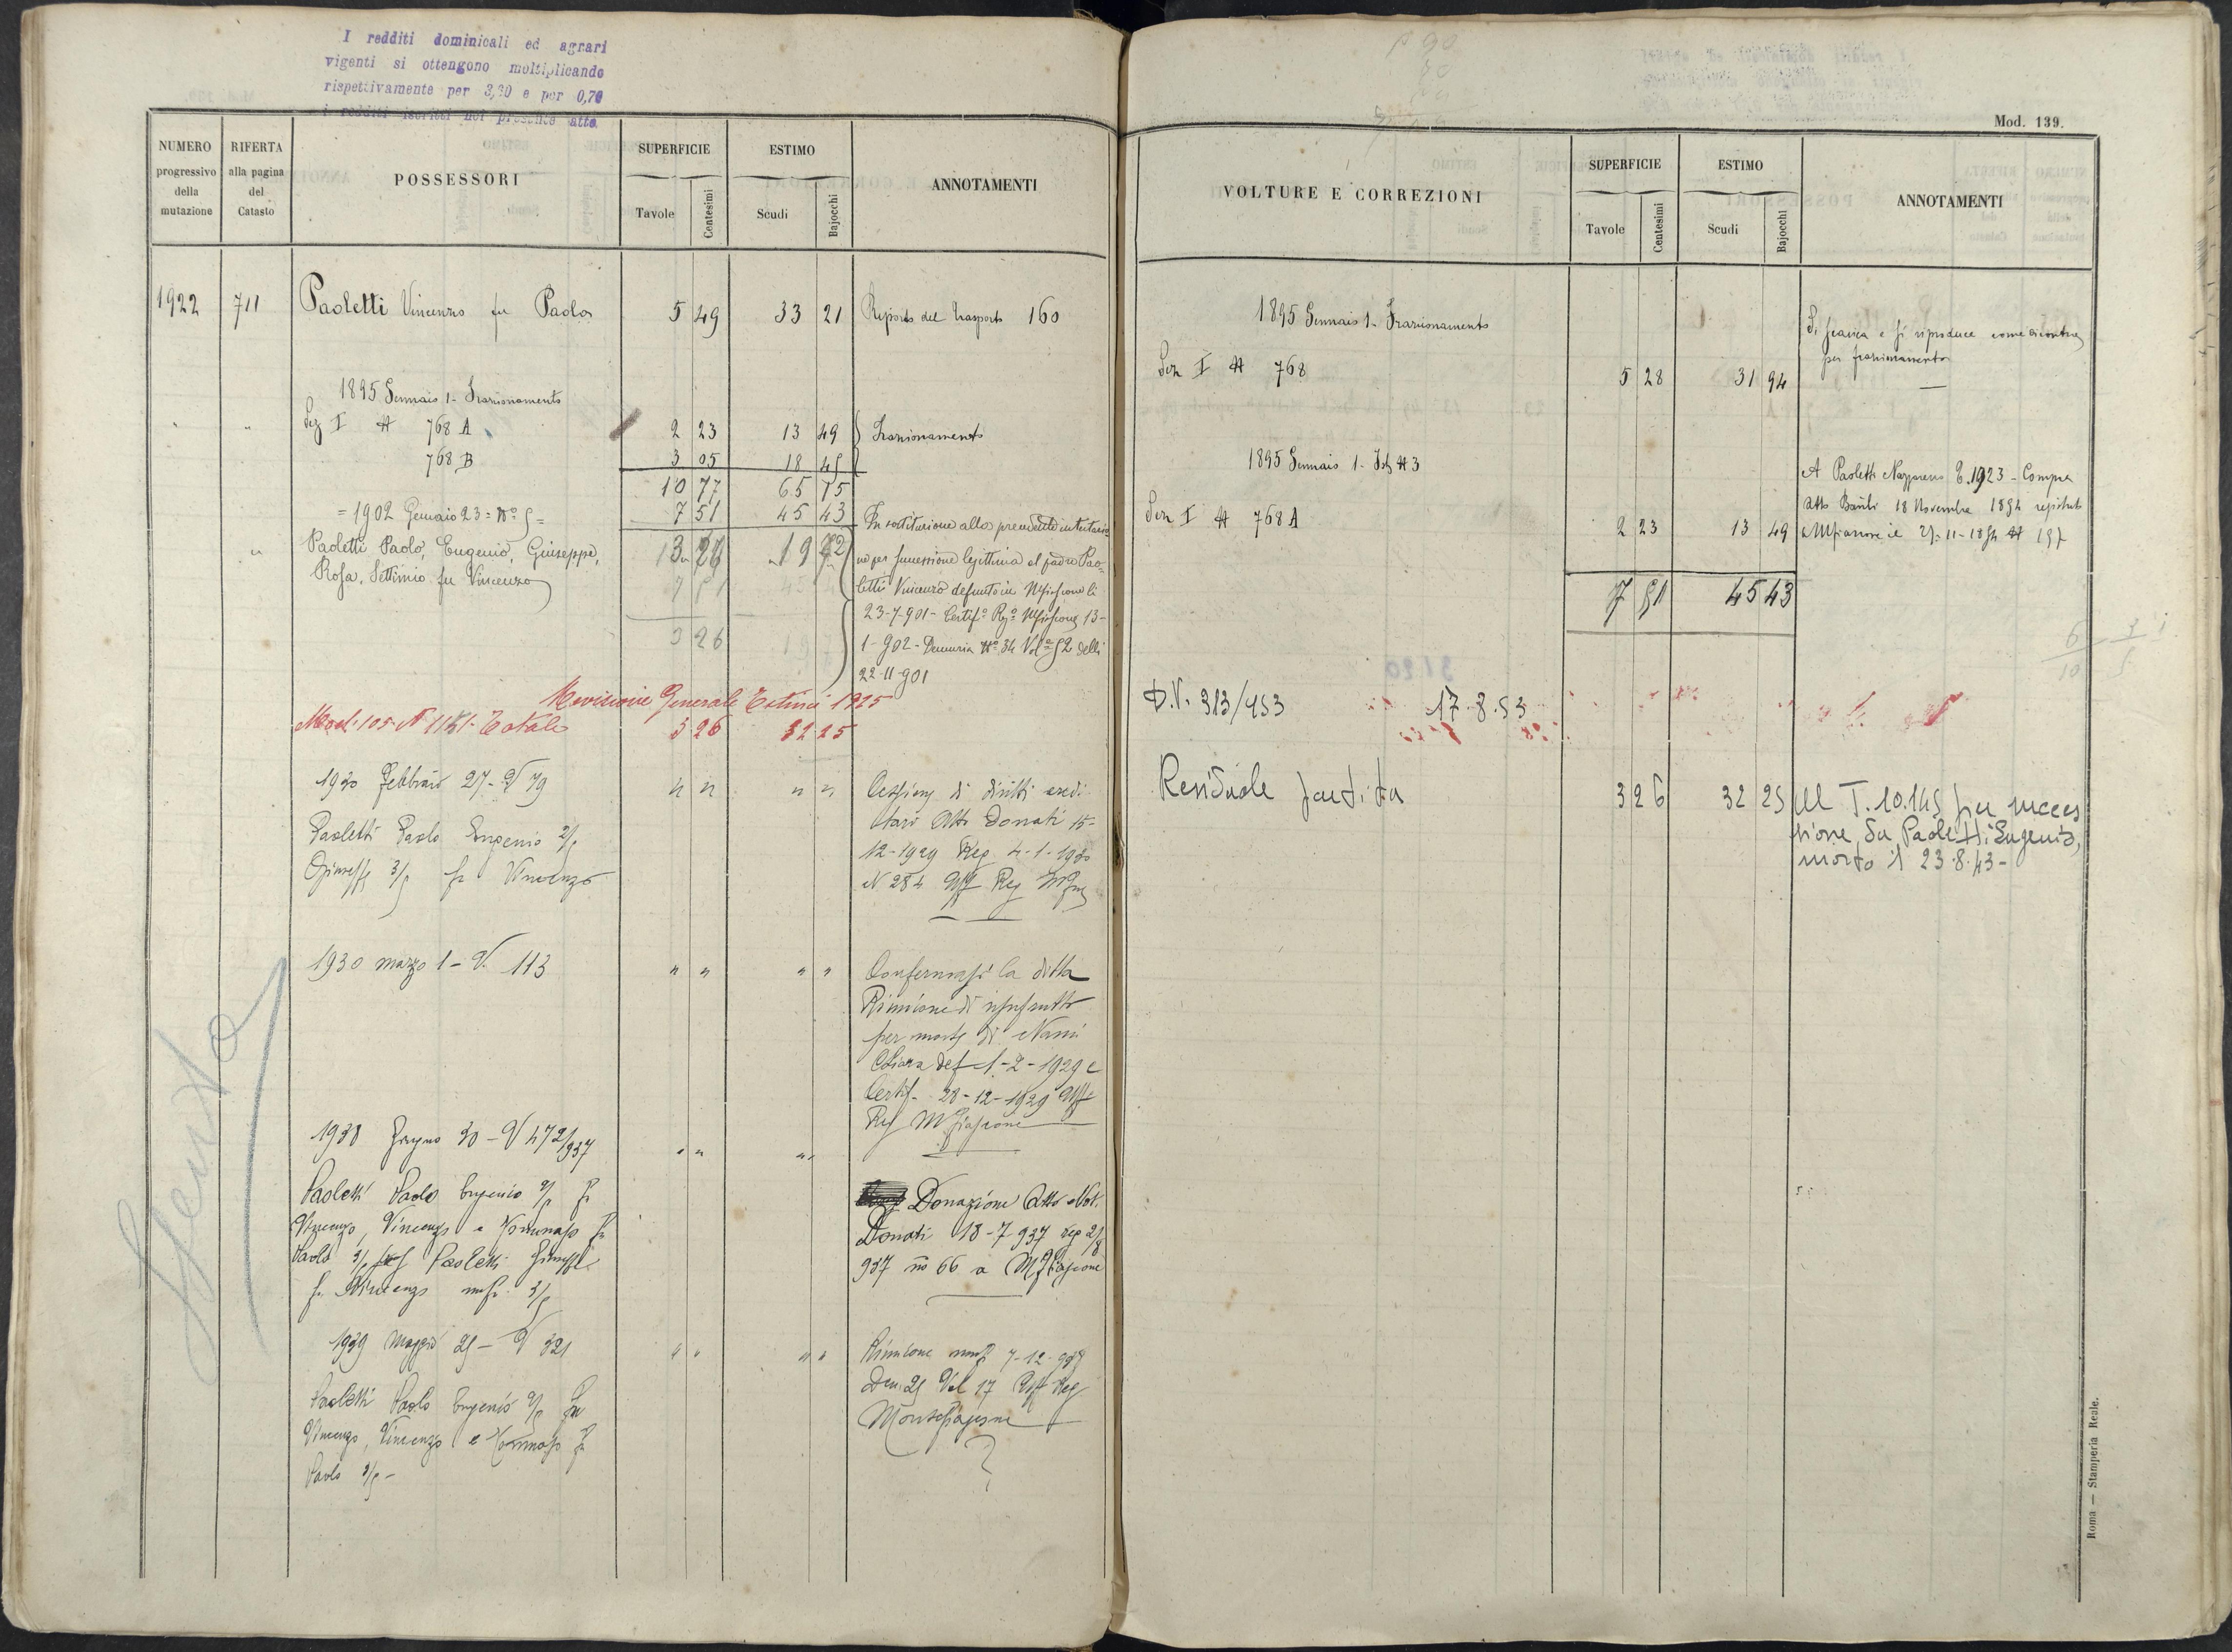 I redditi dominicali ed agrari
vigenti si ottengono moltiplicando
rispettivamente per 3,30 e per 0,70
i redditi iscritti nel presente atto
NUMERO
progressivo
della
mutazione
RIFERTA
alla pagina
del
Catasto
POSSESSORI
SUPERFICIE
Tavole
Centesimi
ESTIMO
Scudi
Bajocchi
ANNOTAMENTI
1922 711 Paoletti Vincenzo fu Paolo 5 49 33 21 Riporto del trasporto 160
1895 Gennaio 1 - Frazionamento
Sez I # 768 A 2 23 13 49 Frazionamento
768 B 3 05 18 45
10 77 65 15
7 51 45 43
= 1902 Gennaio 23 = N.º 5 =
Paoletti Paolo, Eugenio, Giuseppe,
Rosa, Settimio fu Vincenzo
3 26 19 72
In sostituzione alla precedente intestazio
ne per successione legittima al padre Pao=
letti Vincenzo defunto in Mfiascone li
23-7-901 - Certif.º Rg.º Mfiascone 13-
1-902 - Denunzia Nº 34 Vol.e 52 delli
22-11-901
3 26
Revisione Generale Estimi 1925
Mod. 105 - N 1151 - Totale 3 26 32 25
1930 Febbraio 27 - V 79 " " " "
Paoletti Paolo Eugenio 2/5
Giuseppe 3/5 fu Vincenzo
Cessione di diritti eredi
tari Atto Donati 15-
12-1929 Reg. 4-1-1930
N 284 Uff Reg Mfne
1930 marzo 1 - V. 113 " " " "
Confermasi la ditta
Riunione di usufrutto
per morte di Nanni
Chiara def 1-2-1929 e
Certif. 28-12-1929 Uff
Reg Mfiascone
1938 Giugno 30 - V 472/937 " " " "
Paoletti Paolo Eugenio 2/5 fu
Vincenzo, Vincenzo e Tommaso fu
Paolo 3/5 Paoletti Giuseppe
fu Vincenzo usuf. 3/5
Donazione Atto Not.
Donati 18-7 937 reg 2/8
937 nº 66 a Mfiascone
1939 Maggio 25 - V 321 " " " "
Paoletti Paolo Eugenio 2/5 fu
Vincenzo, Vincenzo e Tommaso fu
Paolo 3/5 -
Riunione usuf 7-12-937
Den. 25 Vol 17 Uff Reg
Montefiascone
Mod. 139.
VOLTURE E CORREZIONI
SUPERFICIE
Tavole
Centesimi
ESTIMO
Scudi
Bajocchi
ANNOTAMENTI
1895 Gennaio 1 - Frazionamento
Sez I # 768 5 28 31 94
Si scarica e si riproduce come dicontro
per frazionamento
1895 Gennaio 1 - # 3
Sez I # 768 A 2 23 13 49
A Paoletti Nazzareno T. 1923 - Compra
atto 18 Novembre 1894 registrato
a Mfiascone il
7 51 45 43
D.V. 313/953 17.8.53
Residuale partita 3 26 32 25
Al T. 10.145 per succes
sione da Paoletti Eugenio,
morto il 23.8.43-
Roma — Stamperia Reale.